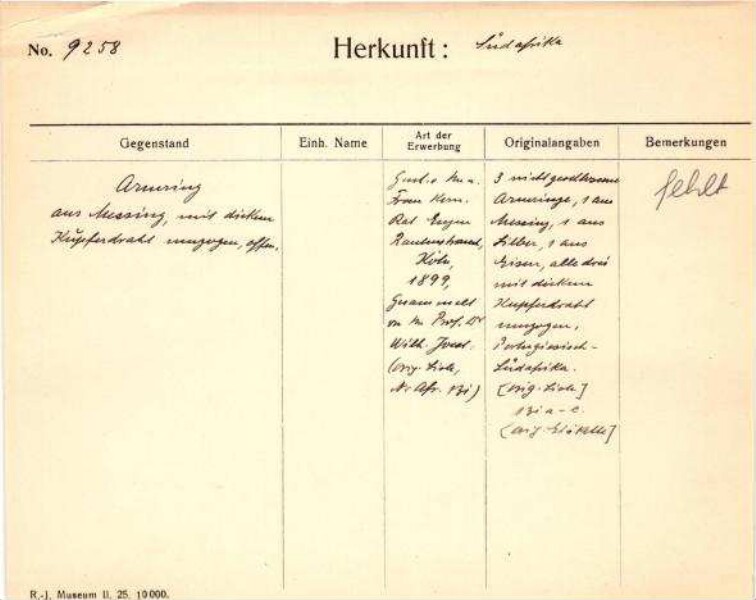 No. 9258
Herkunft: Südafrika
Gegenstand
Einh. Name
Art der Erwerbung
Originalangaben
Bemerkungen
Armring
aus Messing, mit dickem
Kupferdraht umzogen, offen.
Frau Kom.
Rat Eugen
Rautenstrauch,
Köln,
1899,
Gesammelt
Prof. Dr
Wilh. Joest.
(orig. Liste,
Nr Afr. 131)
3 nicht geschlossene
Armringe, 1 aus
Messing, 1 aus
Silber, 1 aus
Eisen, alle drei
mit dickem
Kupferdraht
umzogen,
Portugiesisch-
Südafrika.
[orig. Liste]
131 a-c.
[orig. Etikette]
fehlt
R.-J. Museum II. 25. 10000.